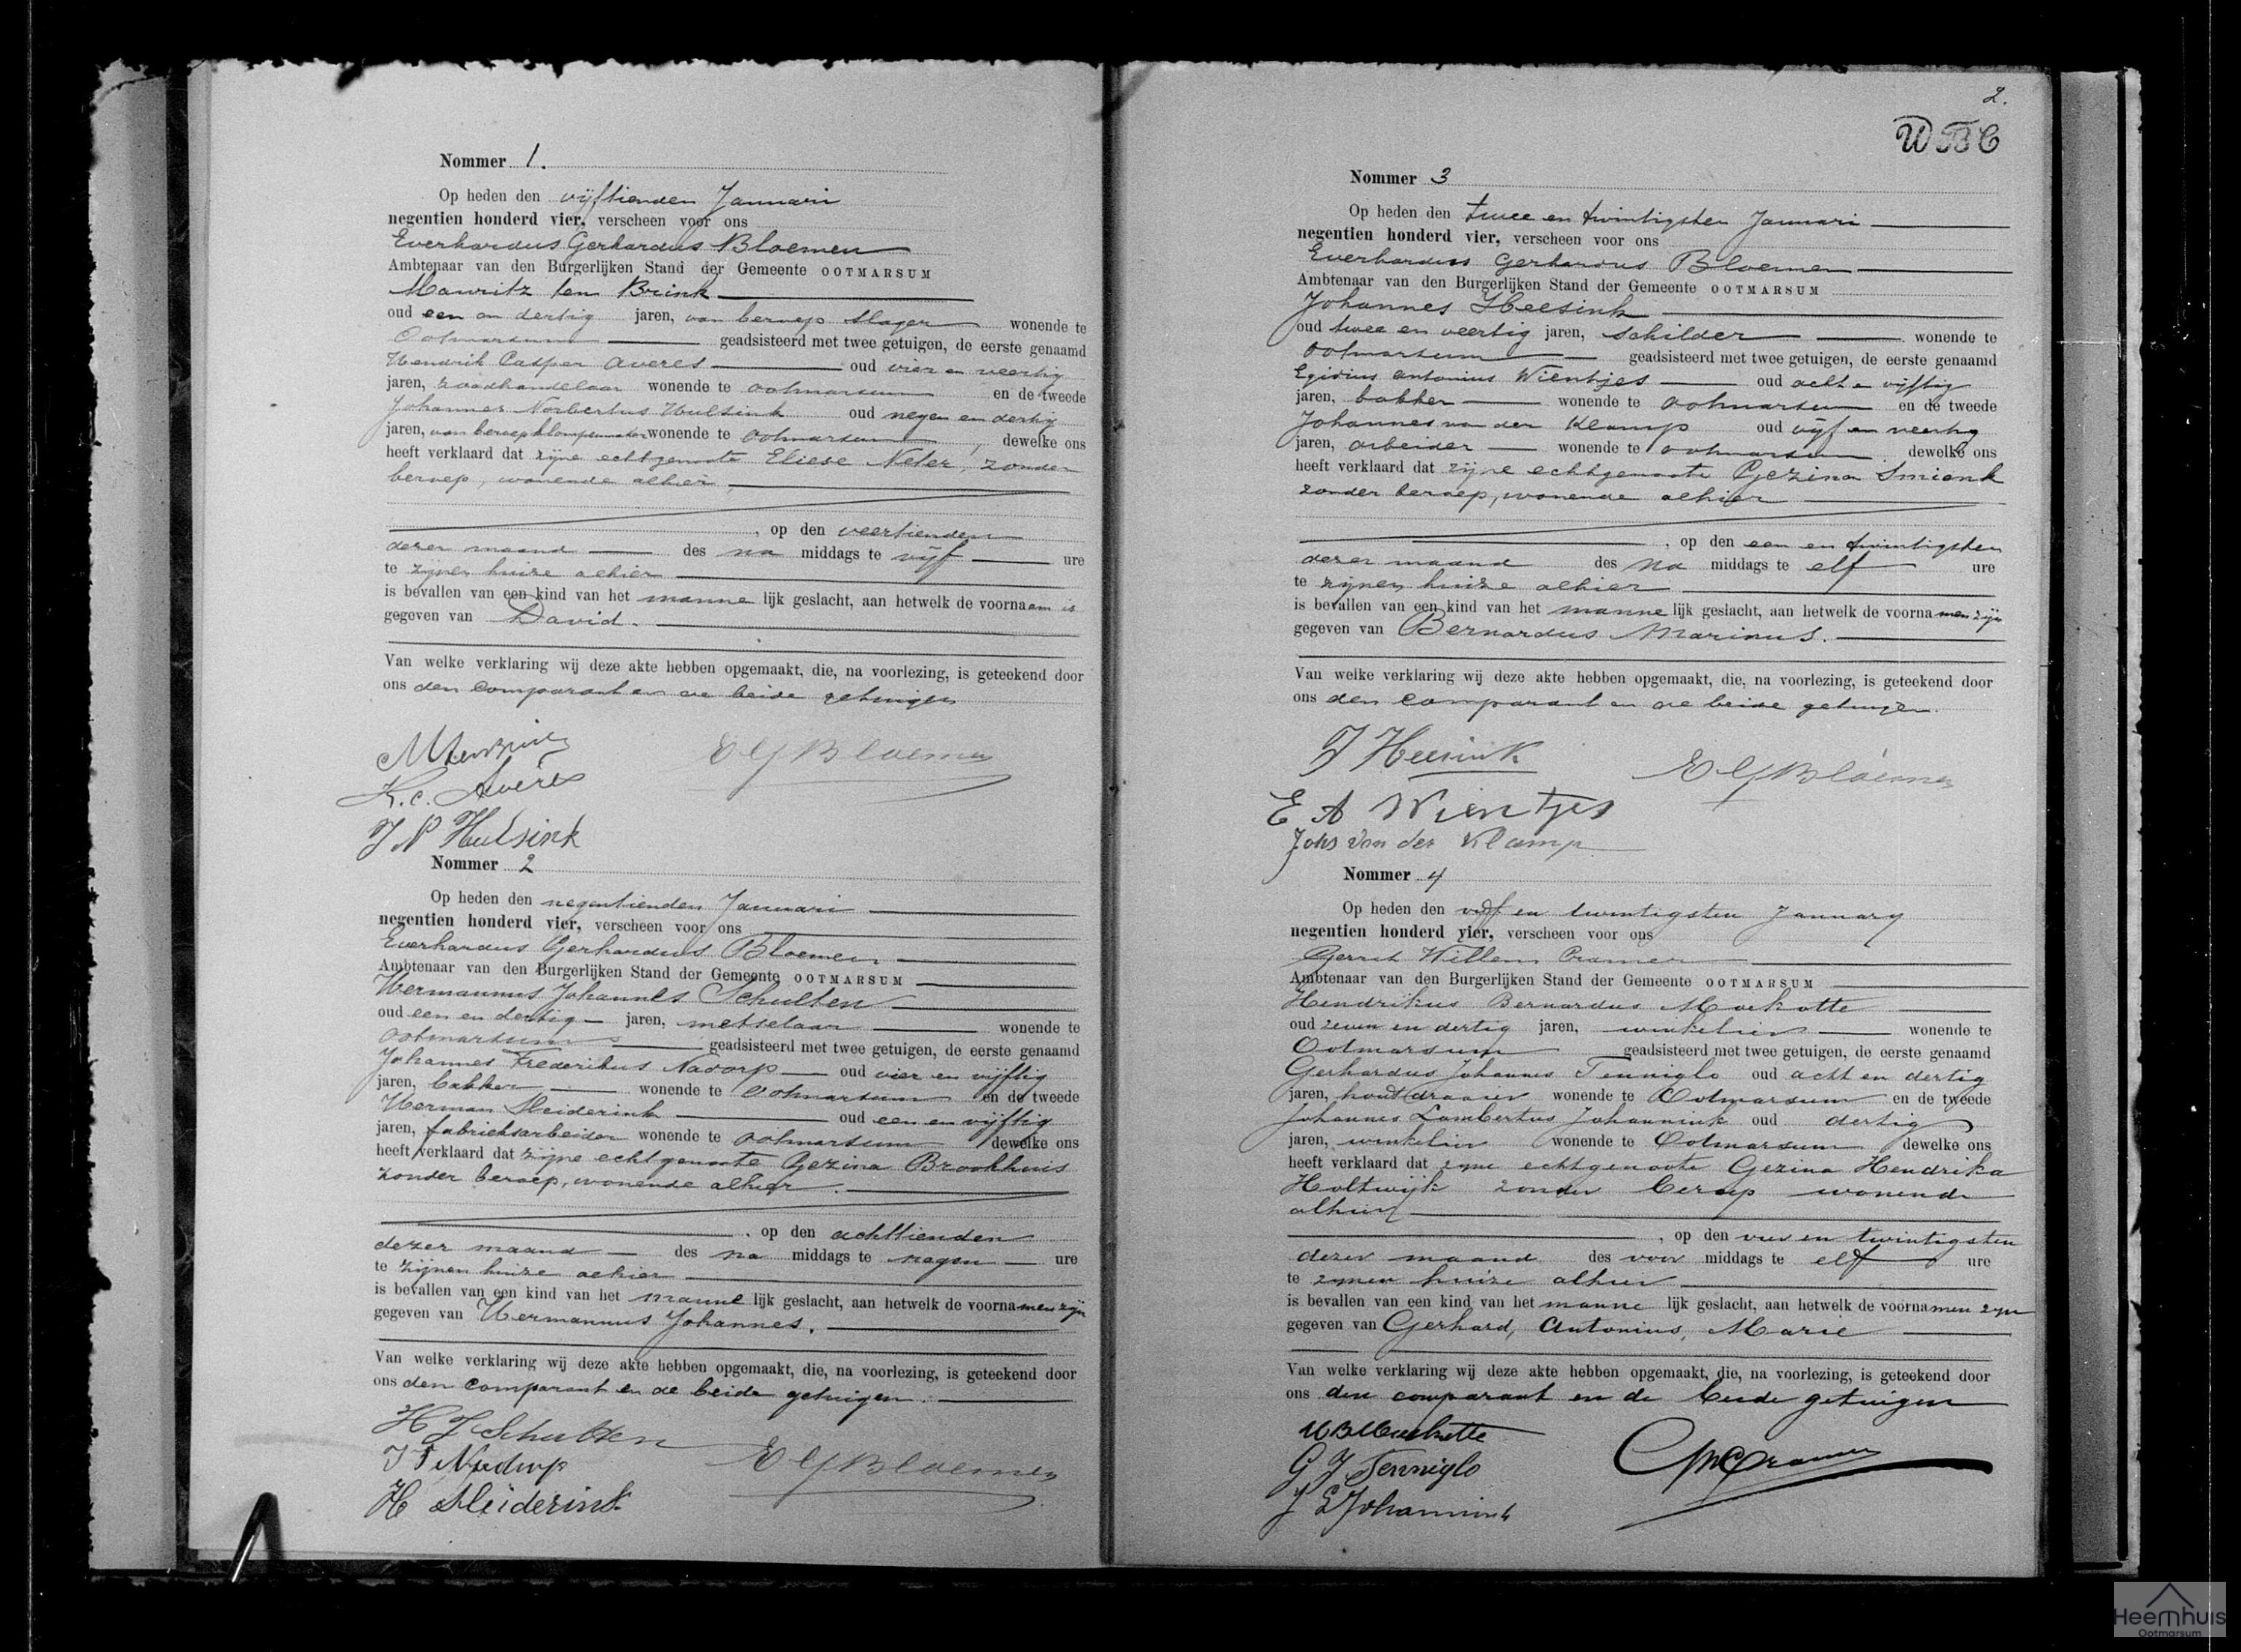 Nommer 1.
Op heden den vijftienden Januari
negentien honderd vier, verscheen voor ons
Everhardus Gerhardus Bloemen
Ambtenaar van den Burgerlijken Stand der Gemeente OOTMARSUM
Mauritz ten Brink
oud een en dertig jaren, van beroep slager wonende te
Ootmarsum geadsisteerd met twee getuigen, de eerste genaamd
Hendrik Casper Averes oud vier en veertig
jaren, zaadhandelaar wonende te Ootmarsum en de tweede
Johannes Norbertus Hulsink oud negen en dertig
jaren, van beroep klompenmaker wonende te Ootmarsum, dewelke ons
heeft verklaard dat zijne echtgenoote Eliese Neter, zonder
beroep, wonende alhier,
, op den veertienden
dezer maand des na middags te vijf ure
te zijnen huize alhier
is bevallen van een kind van het manne lijk geslacht, aan hetwelk de voornaam is
gegeven van David.
Van welke verklaring wij deze akte hebben opgemaakt, die, na voorlezing, is geteekend door
ons den comparant en de beide getuigen
MtenBrink
H.C. Averes
E G Bloemen
J N Hulsink
Nommer 2
Op heden den negentienden Januari
negentien honderd vier, verscheen voor ons
Everhardus Gerhardus Bloemen
Ambtenaar van den Burgerlijken Stand der Gemeente OOTMARSUM
Hermannus Johannes Schulten
oud een en dertig jaren, metselaar wonende te
Ootmarsum geadsisteerd met twee getuigen, de eerste genaamd
Johannes Frederikus Nadorp oud vier en vijftig
jaren, bakker wonende te Ootmarsum en de tweede
Herman Sleiderink oud een en vijftig
jaren, fabrieksarbeider wonende te Ootmarsum dewelke ons
heeft verklaard dat zijne echtgenoote Gezina Brookhuis
zonder beroep, wonende alhier.
, op den achttienden
dezer maand des na middags te negen ure
te zijnen huize alhier
is bevallen van een kind van het manne lijk geslacht, aan hetwelk de voornamen zijn
gegeven van Hermannus Johannes.
Van welke verklaring wij deze akte hebben opgemaakt, die, na voorlezing, is geteekend door
ons den comparant en de beide getuigen.
H J Schulten
J F Nadorp
E G Bloemen
H Sleiderink
2.
WBC
Nommer 3
Op heden den twee en twintigsten Januari
negentien honderd vier, verscheen voor ons
Everhardus Gerhardus Bloemen
Ambtenaar van den Burgerlijken Stand der Gemeente OOTMARSUM
Johannes Heesink
oud twee en veertig jaren, schilder wonende te
Ootmarsum geadsisteerd met twee getuigen, de eerste genaamd
Egidius Antonius Wientjes oud acht en vijftig
jaren, bakker wonende te Ootmarsum en de tweede
Johannes van der Klamp oud vijf en veertig
jaren, arbeider wonende te Ootmarsum dewelke ons
heeft verklaard dat zijne echtgenoote Gezina Smienk
zonder beroep, wonende alhier
, op den een en twintigsten
dezer maand des na middags te elf ure
te zijnen huize alhier
is bevallen van een kind van het manne lijk geslacht, aan hetwelk de voornamen zijn
gegeven van Bernardus Marinus.
Van welke verklaring wij deze akte hebben opgemaakt, die, na voorlezing, is geteekend door
ons den comparant en de beide getuigen.
J Heesink
E G Bloemen
E A Wientjes
Johs van der Klamp
Nommer 4
Op heden den vijf en twintigsten January
negentien honderd vier, verscheen voor ons
Gerrit Willem Cramer
Ambtenaar van den Burgerlijken Stand der Gemeente OOTMARSUM
Hendrikus Bernardus Moekotte
oud zeven en dertig jaren, winkelier wonende te
Ootmarsum geadsisteerd met twee getuigen, de eerste genaamd
Gerhardus Johannes Tenniglo oud acht en dertig
jaren, houtdraaier wonende te Ootmarsum en de tweede
Johannes Lambertus Johannink oud dertig
jaren, winkelier wonende te Ootmarsum dewelke ons
heeft verklaard dat zijne echtgenoote Gezina Hendrika
Holtwijk zonder beroep wonende
alhier
, op den vier en twintigsten
dezer maand des voor middags te elf ure
te zijnen huize alhier
is bevallen van een kind van het manne lijk geslacht, aan hetwelk de voornamen zijn
gegeven van Gerhard, Antonius, Marie
Van welke verklaring wij deze akte hebben opgemaakt, die, na voorlezing, is geteekend door
ons den comparant en de beide getuigen
HBMoekotte
G J Tenniglo
GWCramer
J L Johannink
Heemhuis
Ootmarsum